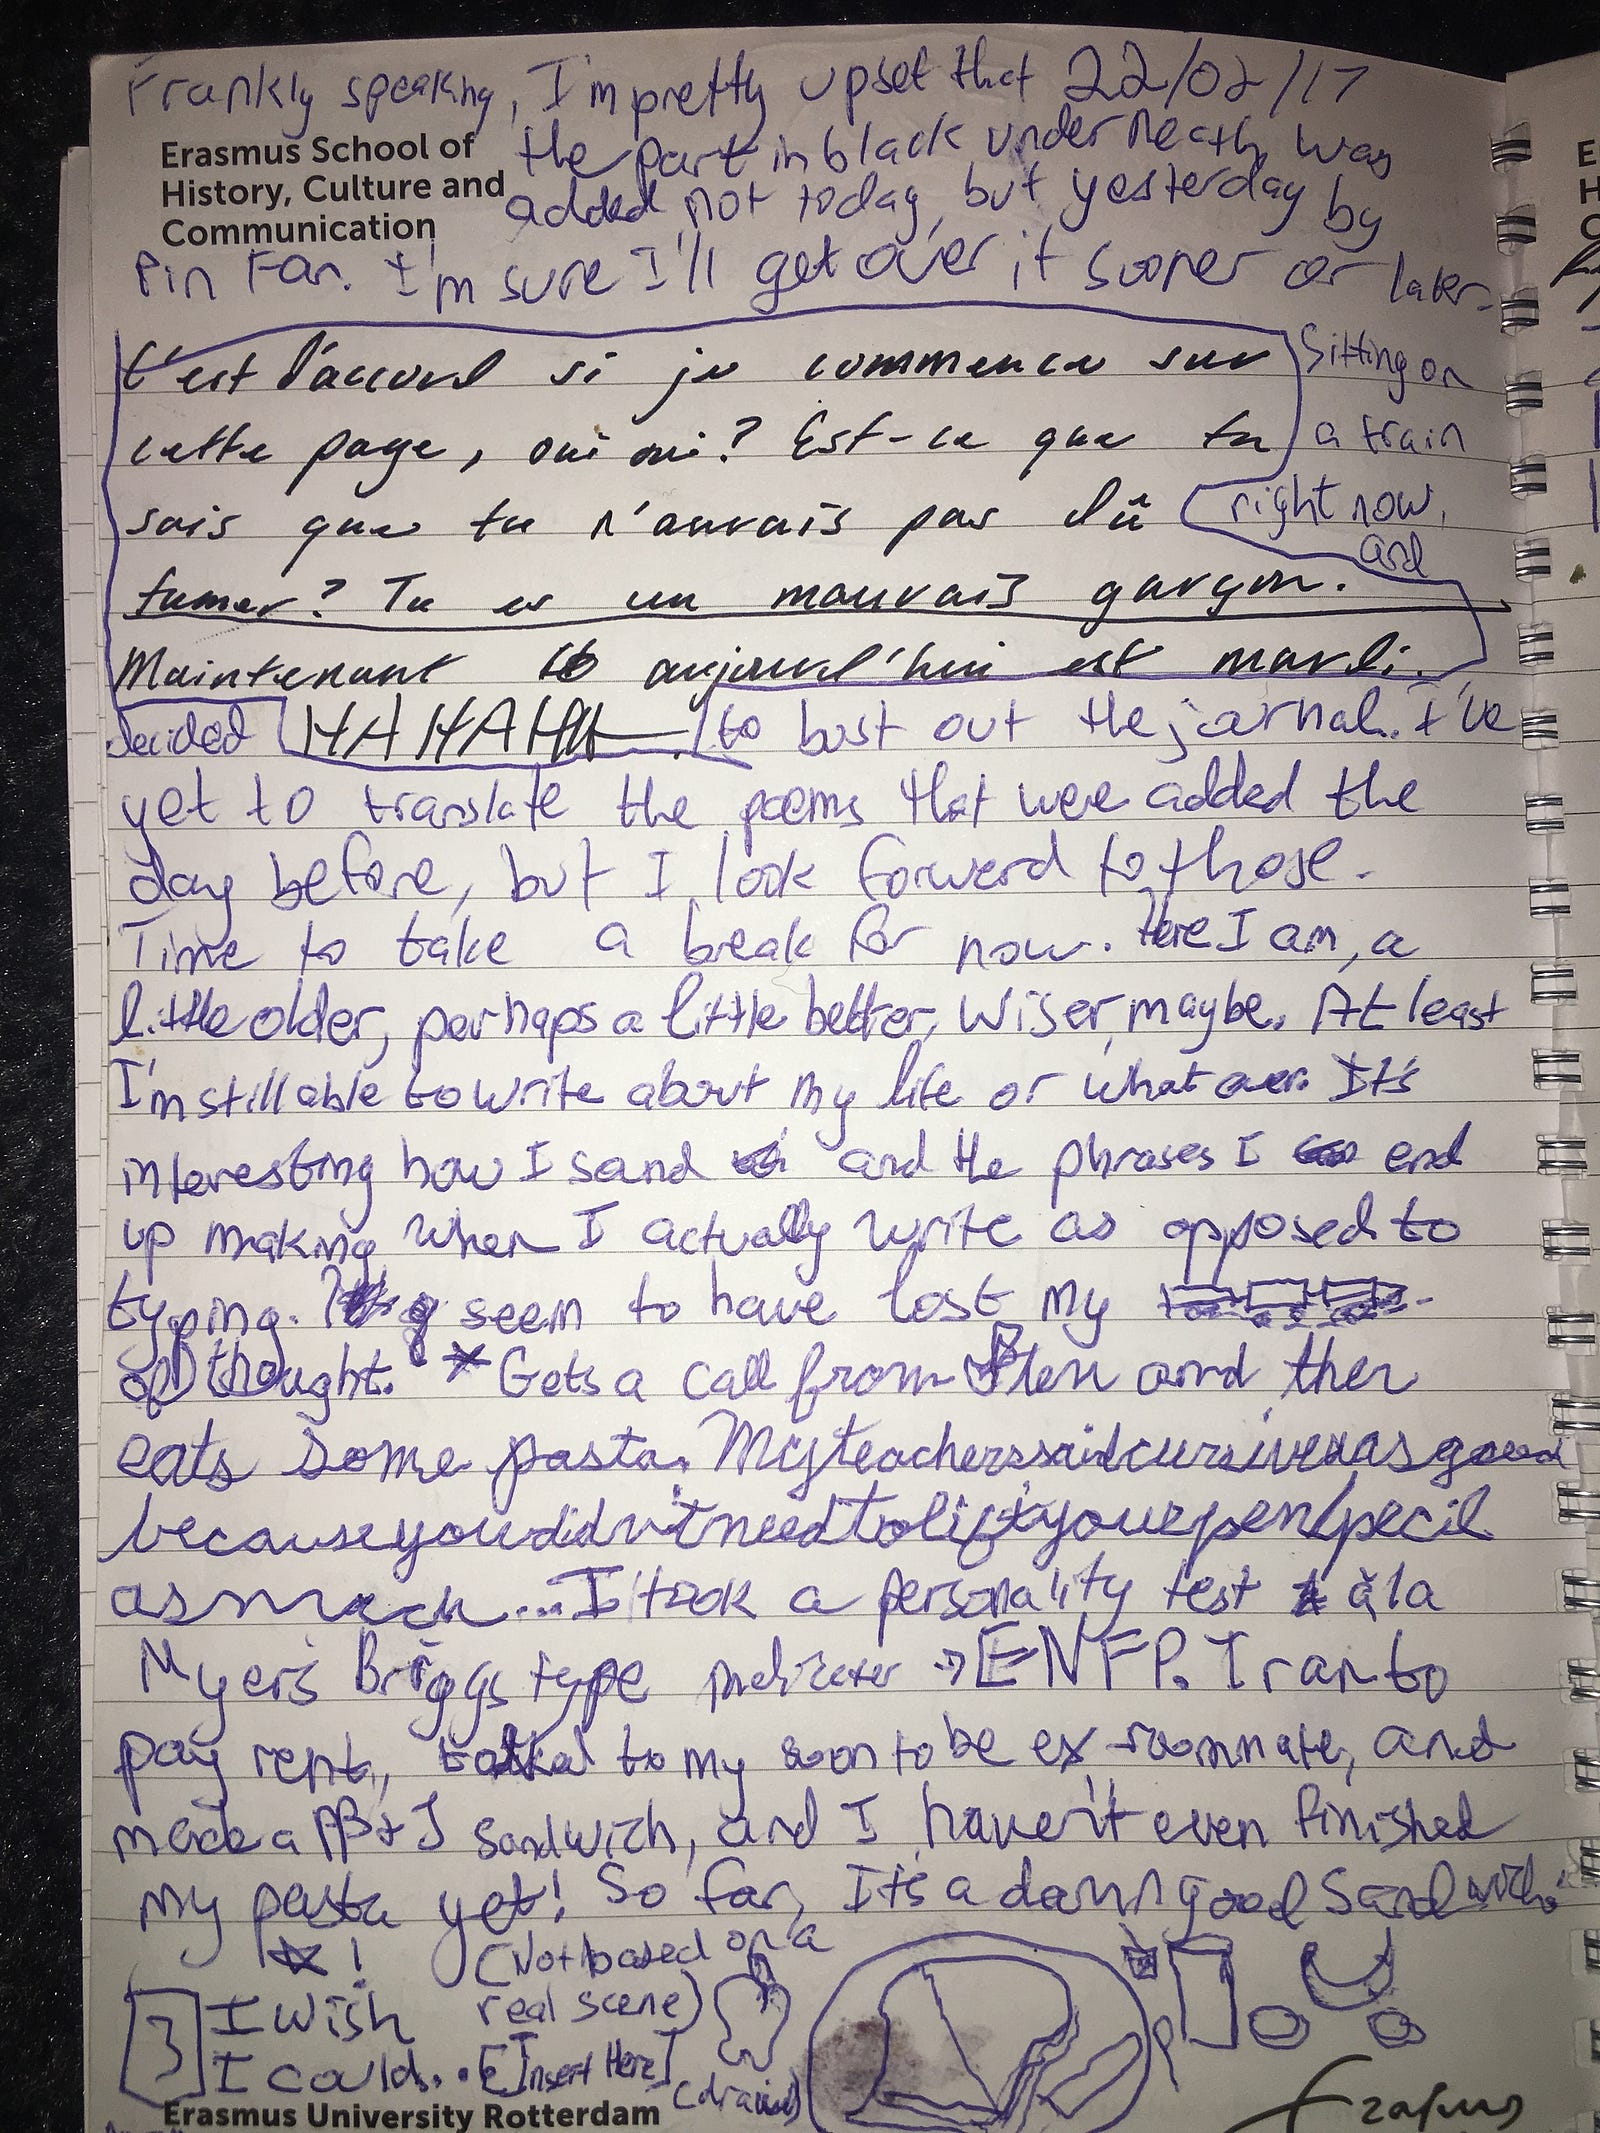 Frankly speaking, I'm pretty upset that 22/02/17
Erasmus School of
History, Culture and
Communication
the part in black underneath was
added, not today, but yesterday by
Pin Far. I'm sure I'll get over it sooner or later.
C'est d'accord si je commence sur
cette page, oui oui? Est-ce que tu
sais que tu n'aurais pas dû
fumer? Tu es un mauvais garçon.
Maintenant aujourd'hui est mardi.
HAHAHA
Sitting on
a train
right now,
and
decided to bust out the journal. I've
yet to translate the poems that were added the
day before, but I look forward to those.
Time to take a break for now. Here I am, a
little older, perhaps a little better, wiser, maybe. At least
I'm still able to write about my life or whatever. It's
interesting how I sound and the phrases I end
up making when I actually write as opposed to
typing. I seem to have lost my
of thought. *Gets a call from and then
eats some pasta. Myteacherssaidcursivewasgood
becauseyoudidn'tneedtoliftyourpen/pecil
asmuch... I took a personality test à la
Myer's Briggs type indicator → ENFP. I ran to
pay rent, talked to my soon to be ex-roommate, and
made a PB+J sandwich, and I haven't even finished
my pasta yet! So far, It's a damn good sandwich.
! (Not based on a
real scene)
I wish
I could... [Insert Here]
Erasmus University Rotterdam
Erasmus